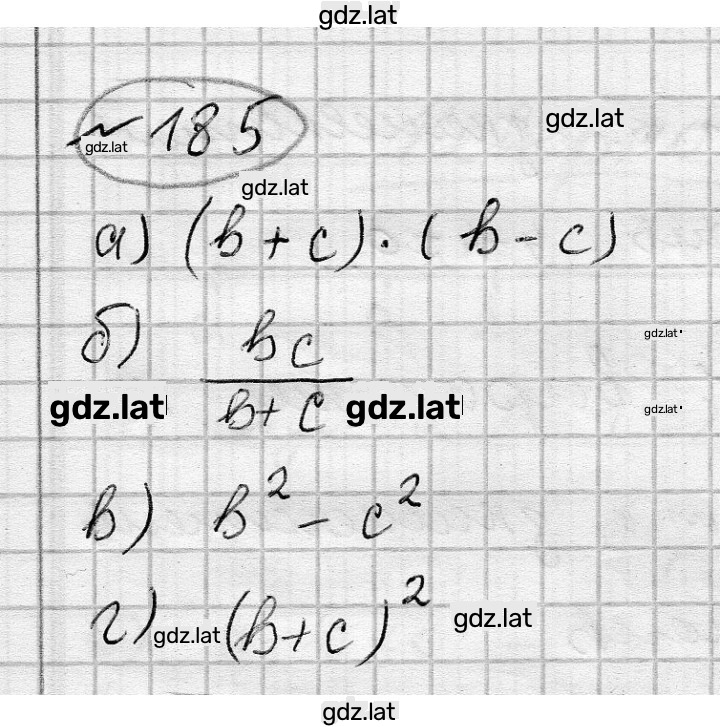 gdz.lat
№ 185
gdz.lat
gdz.lat
gdz.lat
а) (b + c) · (b - c)
б) bc / b + c
gdz.lat
gdz.lat
gdz.lat
gdz.lat
в) b² - c²
г) (b + c)²
gdz.lat
gdz.lat
gdz.lat